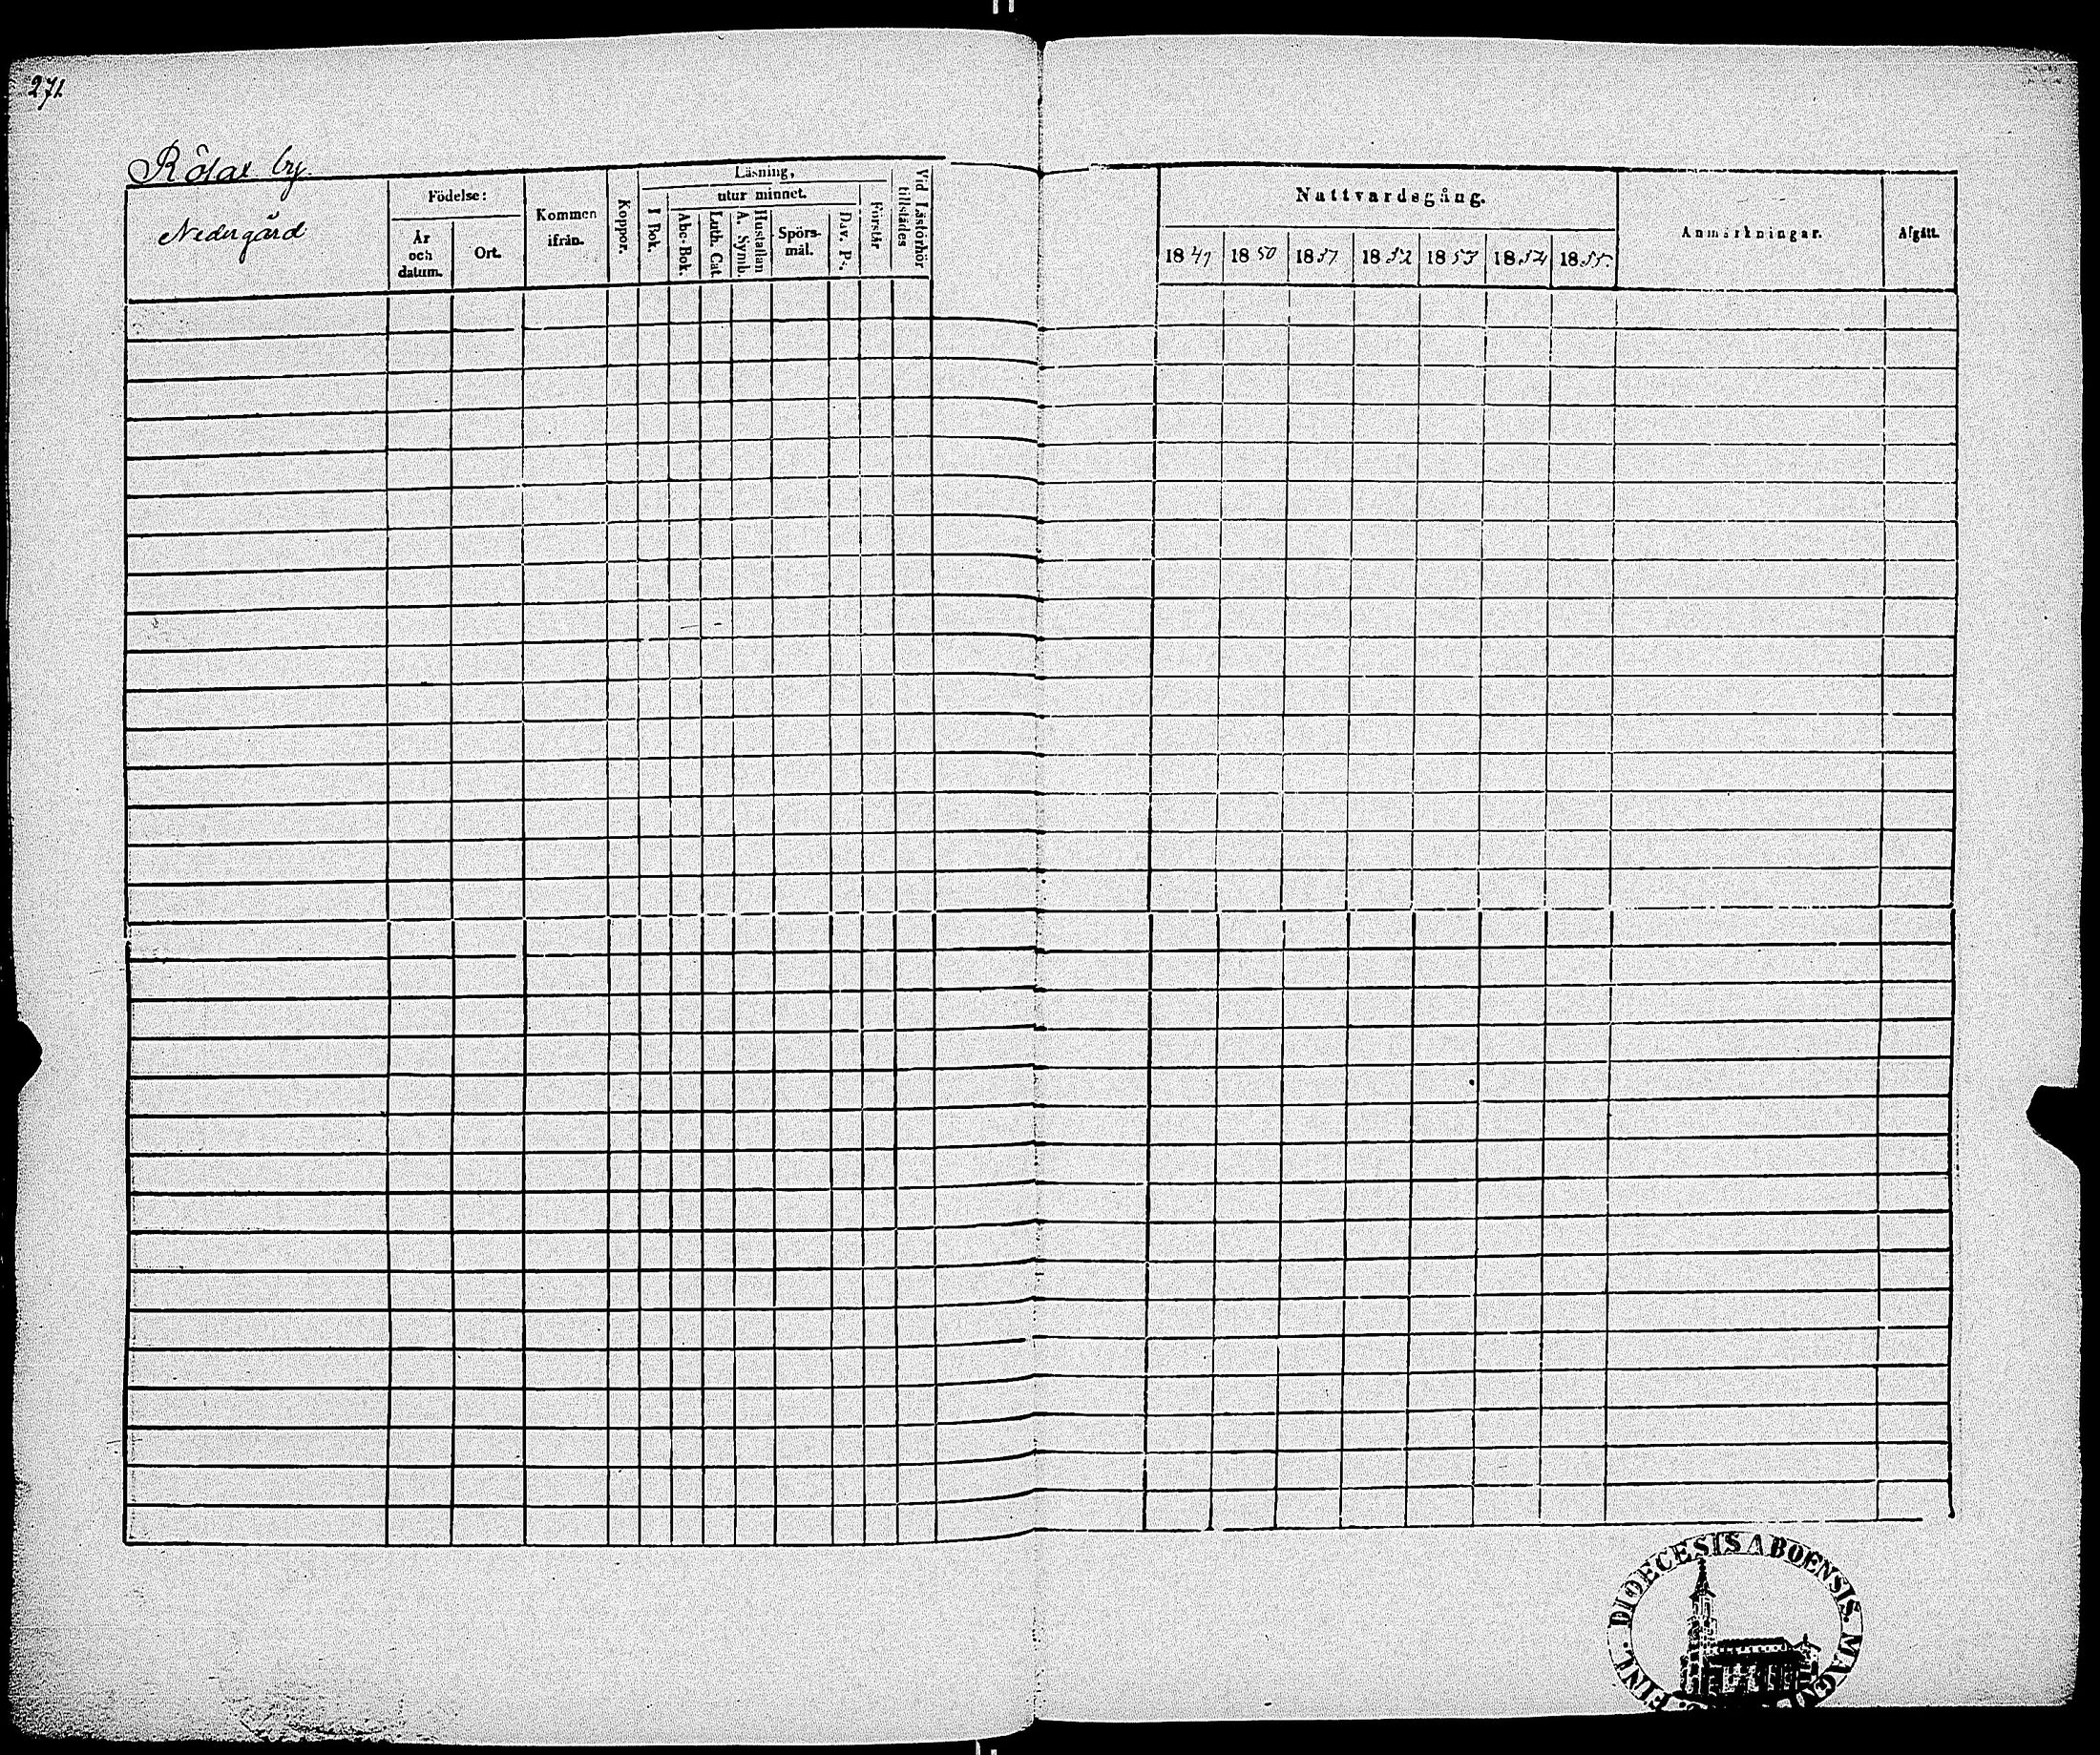 271.
Rôlax by.
Nedergård
Födelse:
År och datum.
Ort.
Kommen ifrån.
Koppor.
Läsning,
I Bok.
utur minnet.
Abc-Bok.
Luth. Cat.
Hustaflan A. Symb.
Spörs-mål.
Dav. Ps.
Förstår
Vid Läsförhör tillstädes
Nattvardsgång.
1849
1850
1851
1852
1853
1854
1855.
Anmärkningar.
Afgått.
FINL. DIOECESIS ABOËNSIS. MAGNI